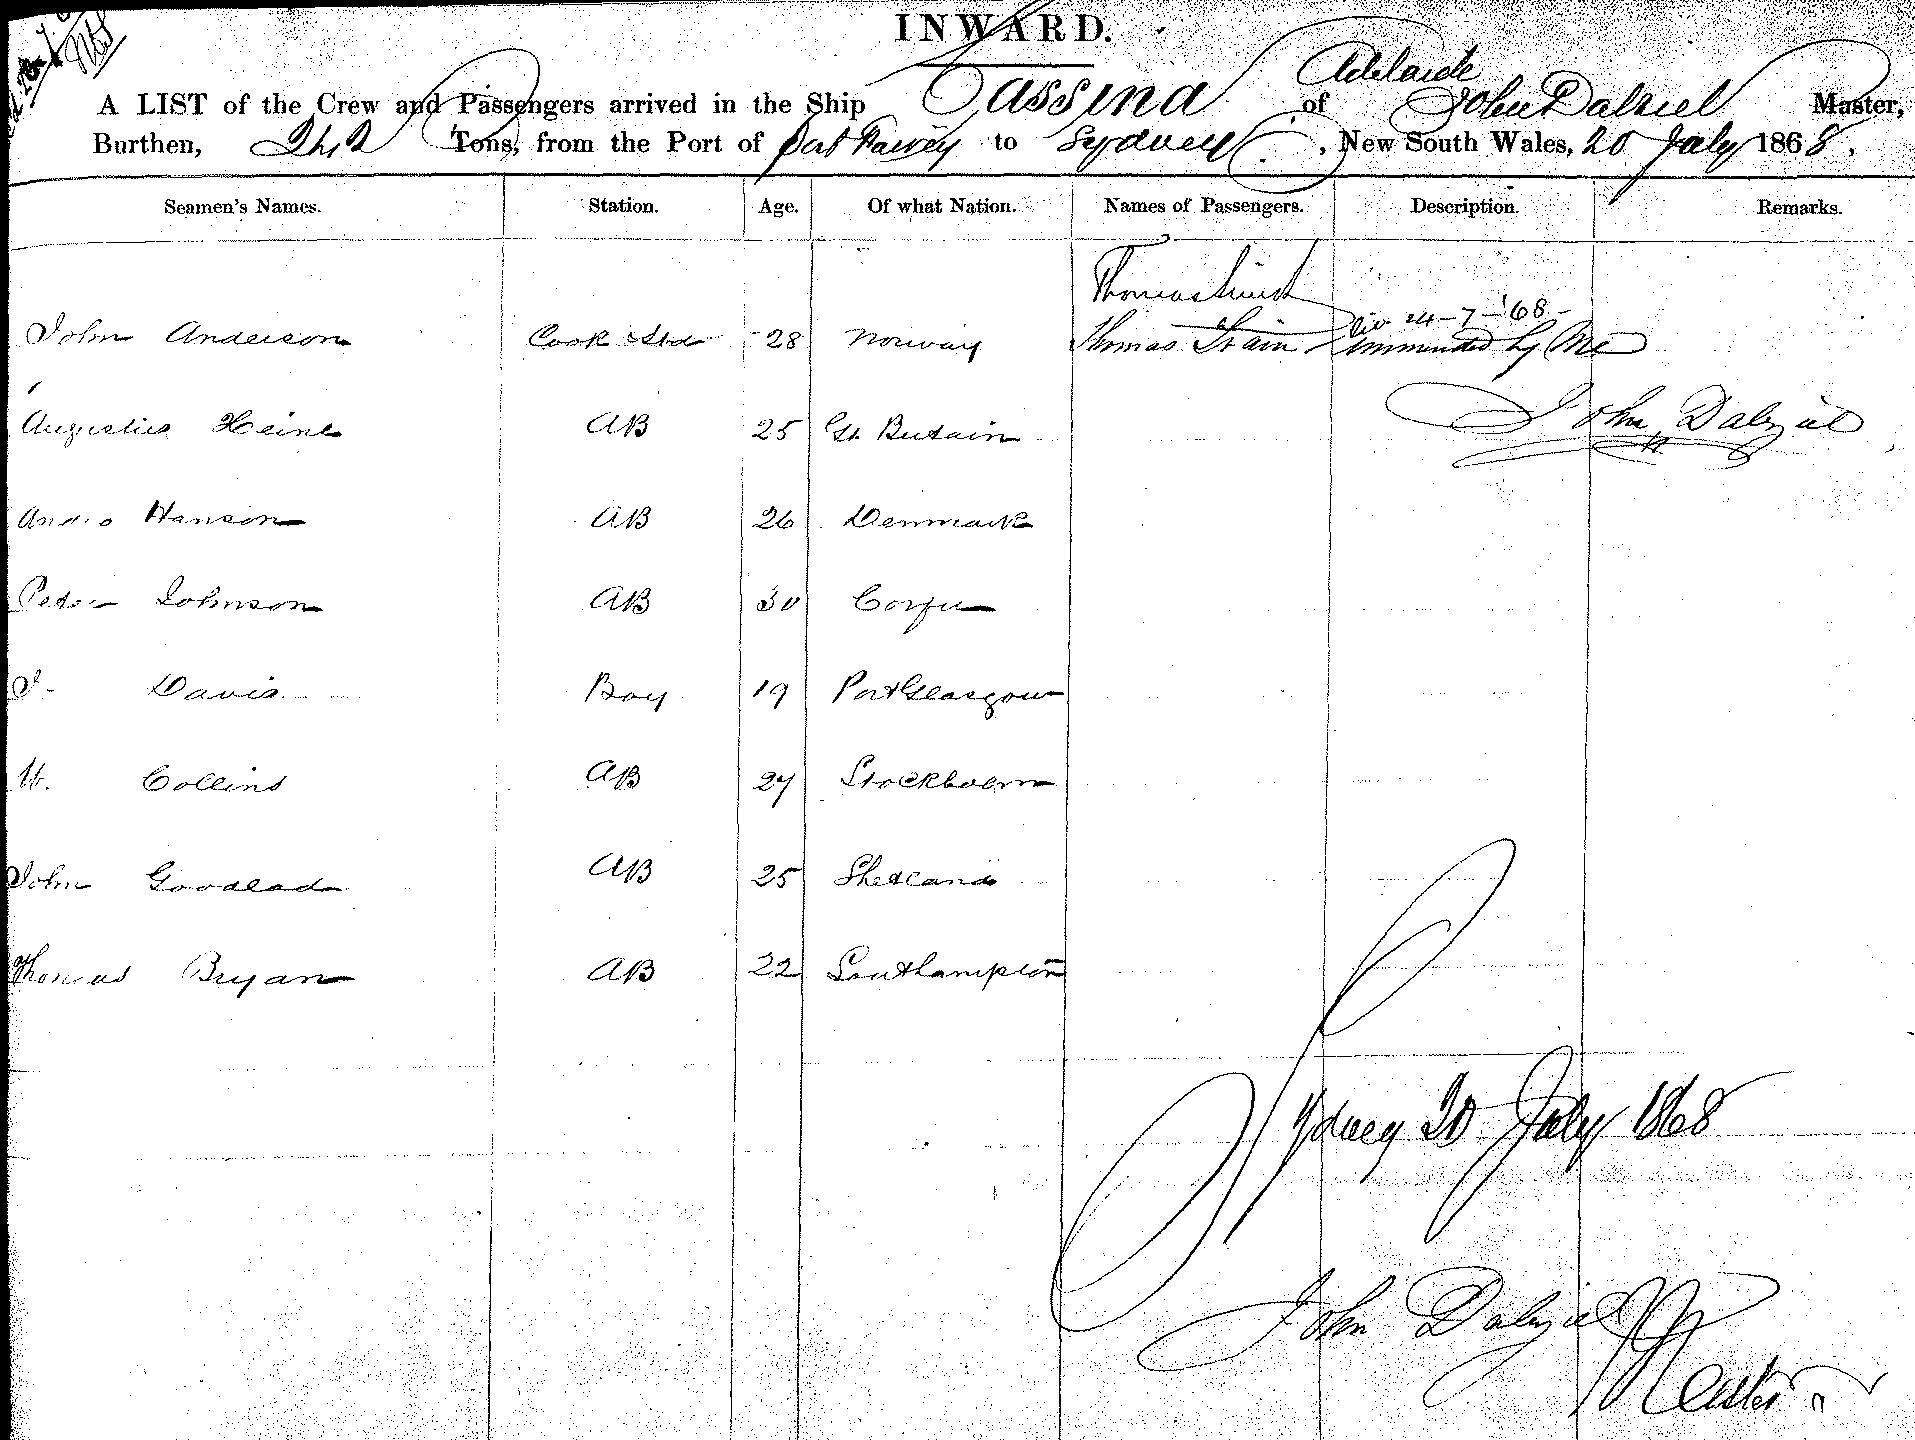 INWARD.
Adelaide
A LIST of the Crew and Passengers arrived in the Ship Tassina of John Dalziel Master,
Burthen, 242 Tons, from the Port of Port Fairy to Sydney, New South Wales, 20 July 1868,
Seamen's Names. Station. Age. Of what Nation. Names of Passengers. Description. Remarks.
24-7-'68
John Anderson Cook & Std 28 Norway Thomas Stain by Me
Augustus Heine AB 25 Gt. Britain John Dalziel
Hanson AB 26 Denmark
Peter Johnson AB 30 Corfu
J. Davis Boy 19 Port Glasgow
W. Collins AB 27 Stockholm
John Goodlad AB 25 Shetland
Thomas Bryan AB 22 Southampton
Sydney 20 July 1868
John Dalziel
Master